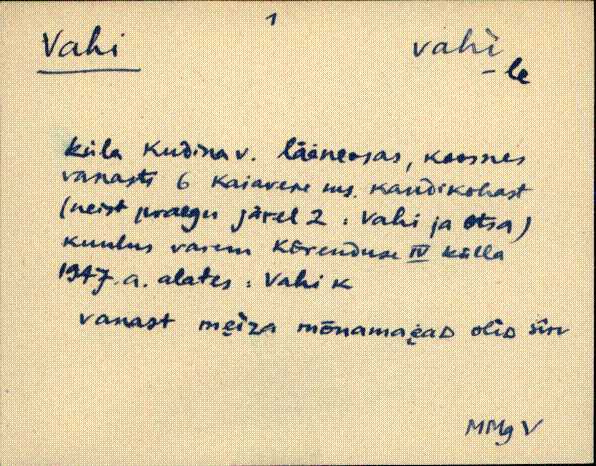 1
Vahi
vahì
-le
küla Kudina v. lääneosas, koosnes
vanasti 6 Kaiavere ms. kandikohast
(neist praegu järel 2 : Vahi ja Otsa)
kuulus varem Kõrenduse IV külla
1947. a. alates : Vahi k
vanast mẹiza mõnamaẹaD oliD sîn
MMg V